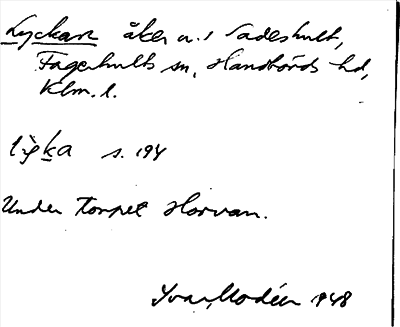 Lyckan åker u. Sadeshult,
Fagerhults sn, Handbörds hd,
Klm. l.
s. 194
Under torpet Horvan.
Ivar Modéer 1948